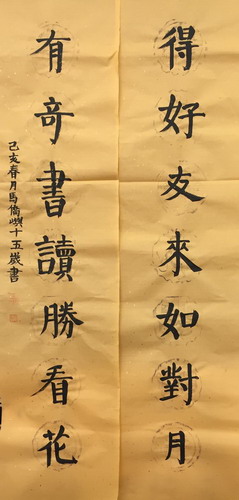 得好友來如對月
有奇書讀勝看花
己亥春月馬僑嶼十五歲書